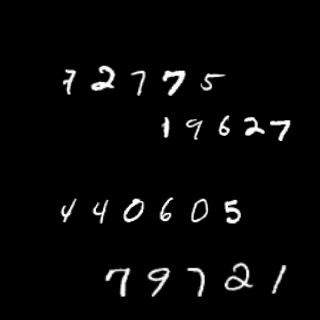 72775
19627
440605
79721